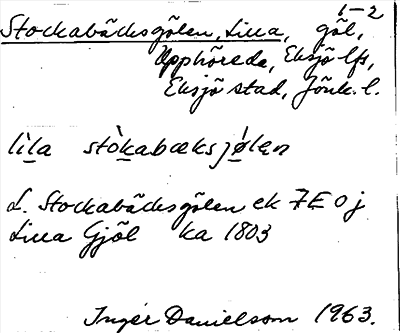 1-2
Stockabäcksgölen, Lilla, göl,
Upphörede, Eksjö lfs,
Eksjö stad, Jönk. l.
lìla stòkabæksjǿlen
L. Stockabäcksgölen ek 7E0j
Lilla Gjöl ka 1803
Inger Danielsson 1963.